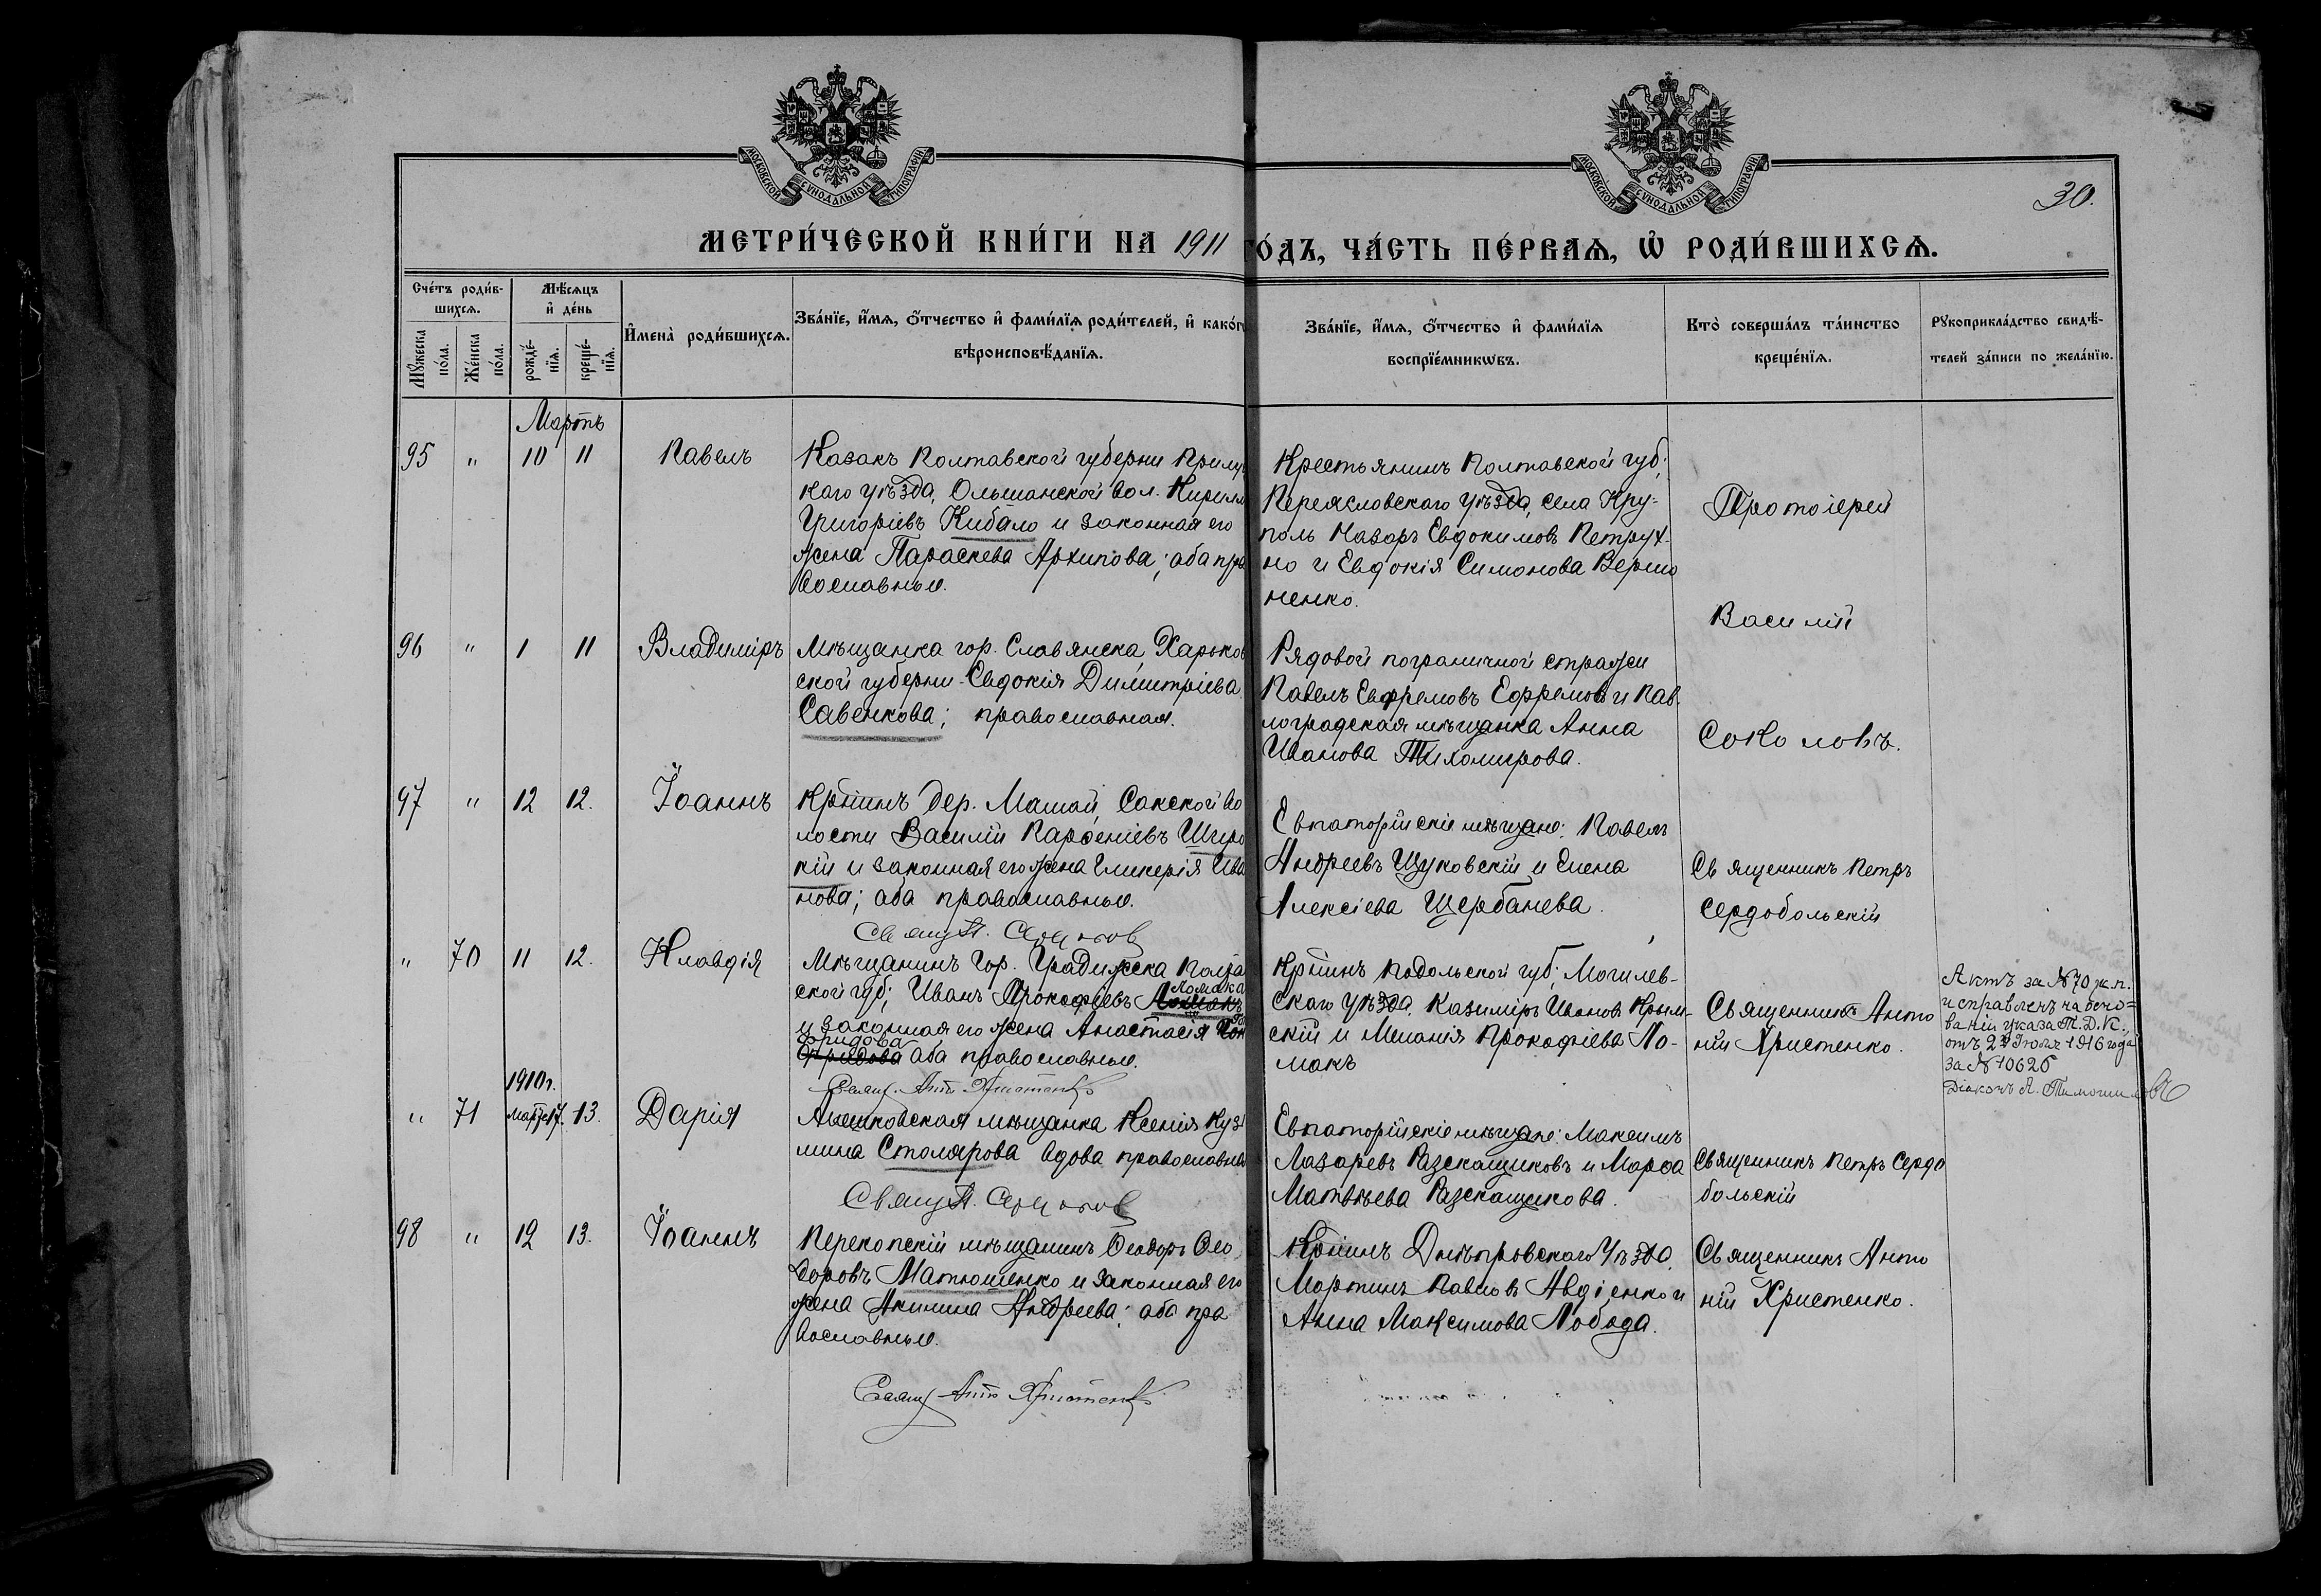 МОСКОВСКОЙ СѴНОДАЛЬНОЙ ТИПОГРАФІИ
МОСКОВСКОЙ СѴНОДАЛЬНОЙ ТИПОГРАФІИ
30.
МЕТРИ́ЧЕСКОЙ КНИ́ГИ НА 1911 ГО́ДЪ, ЧА́СТЬ ПЕ́РВАѦ, Ѡ҆ РОДИ́ВШИХСѦ.
Сче́тъ роди́в-
шихсѧ.
Мꙋ́жеска по́ла.
Же́нска по́ла.
Мѣ́сѧцъ
и҆ де́нь
рожде́-
нїѧ.
креще́-
нїѧ.
И҆мена̀ роди́вшихсѧ.
Зва́нїе, и҆́мѧ, ѻ҆́тчество и҆ фами́лїѧ роди́телей, и҆ како́гѡ
вѣроисповѣ́данїѧ.
Зва́нїе, и҆́мѧ, ѻ҆́тчество и҆ фами́лїѧ
воспрїе́мникѡвъ.
Кто̀ соверша́лъ та́инство
креще́нїѧ.
Рꙋкоприкла́дство свидѣ́-
телей за́писи по жела́нїю.
Мартъ
95 " 10 11 Павелъ
Казакъ Полтавской губерни Прилуц
каго уѣзда, Ольшанской вол. Кирилл
Григоріевъ Кибало и законная его
жена Параскева Архипова; оба пра
вославные.
Крестьянинъ Полтавской губ.
Переясловскаго уѣзда, села Кру-
поль Назаръ Евдокимовъ Петрух-
но и Евдокія Симонова Верно
ненко.
Протоіерей
Василій
Соколовъ.
96 " 1 11 Владиміръ
Мѣщанка гор. Славянска Харьков
ской губерни Евдокія Димитріева
Савенкова; православная.
Рядовой пограничной стражи
Павелъ Ефремовъ Ефремовъ и Пав-
лоградская мѣщанка Анна
Иванова Тихомирова.
97 " 12 12. Іоаннъ
Крнинъ дер. Машай, Сакской во
лости Василій Парѳеніевъ Широ
кій и законная его жена Гликерія Ива
нова; оба православные.
Свящ. П.
Евпаторійскіе мѣщане: Павелъ
Андреевъ Щуковскій и Елена
Алексіева Щербанева.
Священникъ Петръ
Сердобольскій
" 70 11 12. Клавдія
Мѣщанинъ гор. Градижска Полтав
ской губ, Иванъ Прокофіевъ
Ломака
и законная его жена Анастасія
оба православные.
Свящ. Анто Христенко
Крнинъ Подольской губ, Могилев-
скаго уѣзда, Казиміръ Ивановъ Крым-
скій и Меланія Прокофіева Ло-
макъ
Священникъ Анто
ній Христенко.
Актъ за №70 ж.п.
исправленъ на осно=
ваніи указа Т.Д.К.
отъ 27 Іюля 1916 года
за №10626
Діаконъ А.
1910 г.
" 71 Марта 17. 13. Дарія
Алешковская мѣщанка Ксенія Кузь
мина Столярова вдова православная
Свящ. П.
Евпаторійскіе мѣщане: Максимъ
Лазаревъ Разскащиковъ и Марѳа
Матвѣева Разскащикова.
Священникъ Петръ Сердо
больскій
98 " 12 13. Іоаннъ
Перекопскій мѣщанинъ Ѳеодоръ Ѳео
доровъ Матюшенко и законная его
жена Акилина Андреева; оба пра
вославные.
Свящ. Анто Христенко
Крнинъ Днѣпровскаго уѣзда.
Мартинъ Павловъ Авдіенко и
Анна Максимова Лобода.
Священникъ Анто
ній Христенко.